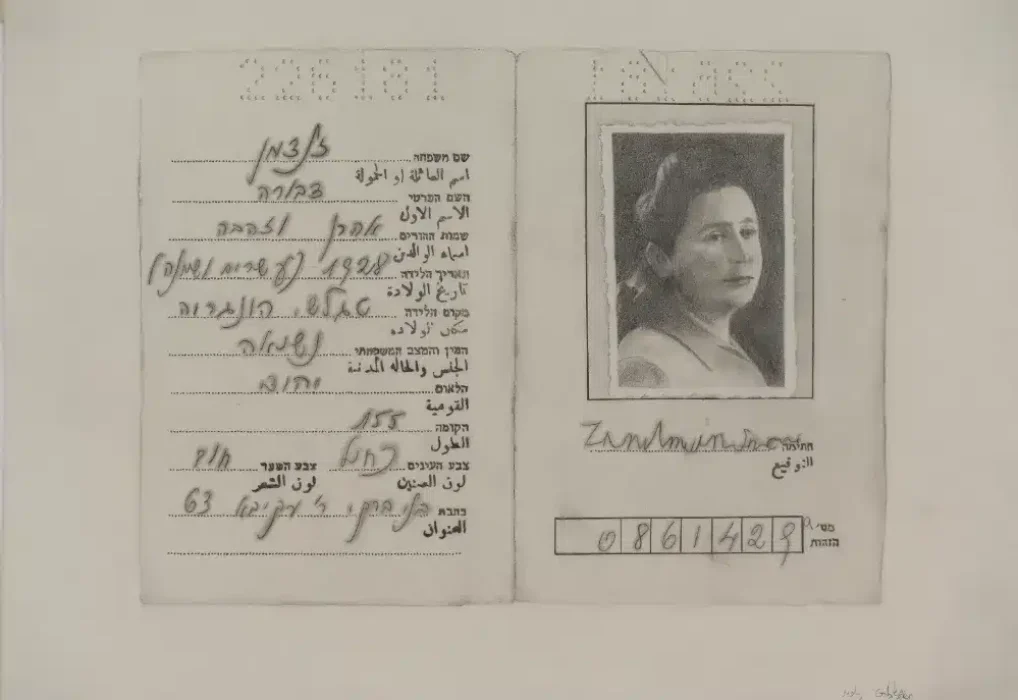 שם משפחה
اسم العائلة او الحمولة
השם הפרטי דבורה
الاسم الاول
שמות ההורים אהרן וזהבה
اسماء الوالدين
תאריך הלידה 1928 (עשרים ושמונה)
تاريخ الولادة
מקום הלידה הונגריה
مكان الولادة
המין והמצב המשפחתי נשואה
الجنس والحالة المدنية
הלאום יהודי
القومية
הקומה 155
الطول
צבע העינים כחול צבע השער חום
لون العينين لون الشعر
כתבת בני ברק, ר' עקיבא 63
العنوان
חתימה
التوقيع
מס'
הזהות
0861429